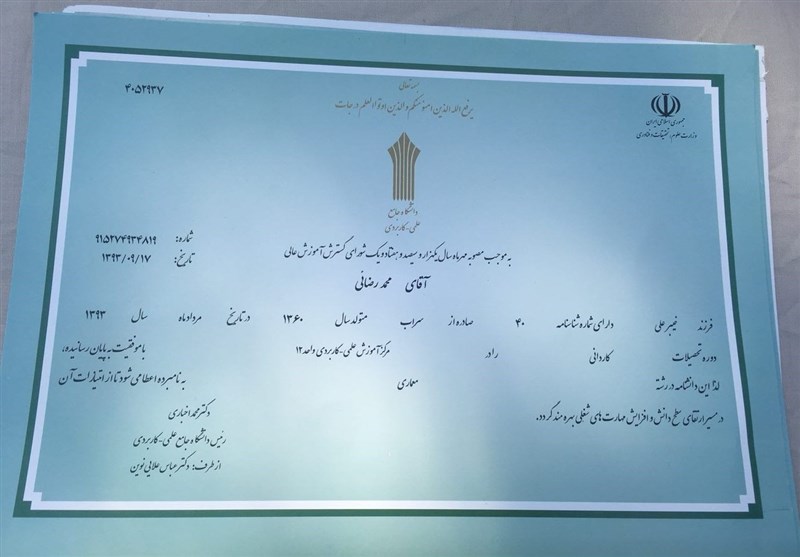 بسمه تعالی
یرفع الله الذین امنو منکم والذین اوتوا العلم درجات
۴۰۵۲۹۳۷
جمهوری اسلامی ایران
وزارت علوم، تحقیقات و فناوری
دانشگاه جامع
علمی-کاربردی
شماره: ۹۱۵۲۷۴۹۳۴۸۱۹
تاریخ: ۱۳۹۳/۰۹/۱۷
به موجب مصوبه مهرماه سال یکهزار و سیصد و هفتاد و یک شورای گسترش آموزش عالی
آقای محمد رضائی
فرزند خیبرعلی دارای شماره شناسنامه ۴۰ صادره از سراب متولد سال ۱۳۶۰ در تاریخ مردادماه سال ۱۳۹۳
دوره تحصیلات کاردانی را در مرکز آموزش علمی-کاربردی واحد ۱۲ با موفقیت به پایان رسانیده،
لذا این دانشنامه در رشته معماری به نامبرده اعطا می شود تا از امتیازات آن
در مسیر ارتقای سطح دانش و افزایش مهارت های شغلی بهره مند گردد.
دکتر محمد اخباری
رئیس دانشگاه جامع علمی-کاربردی
از طرف: دکتر عباس علایی نوین